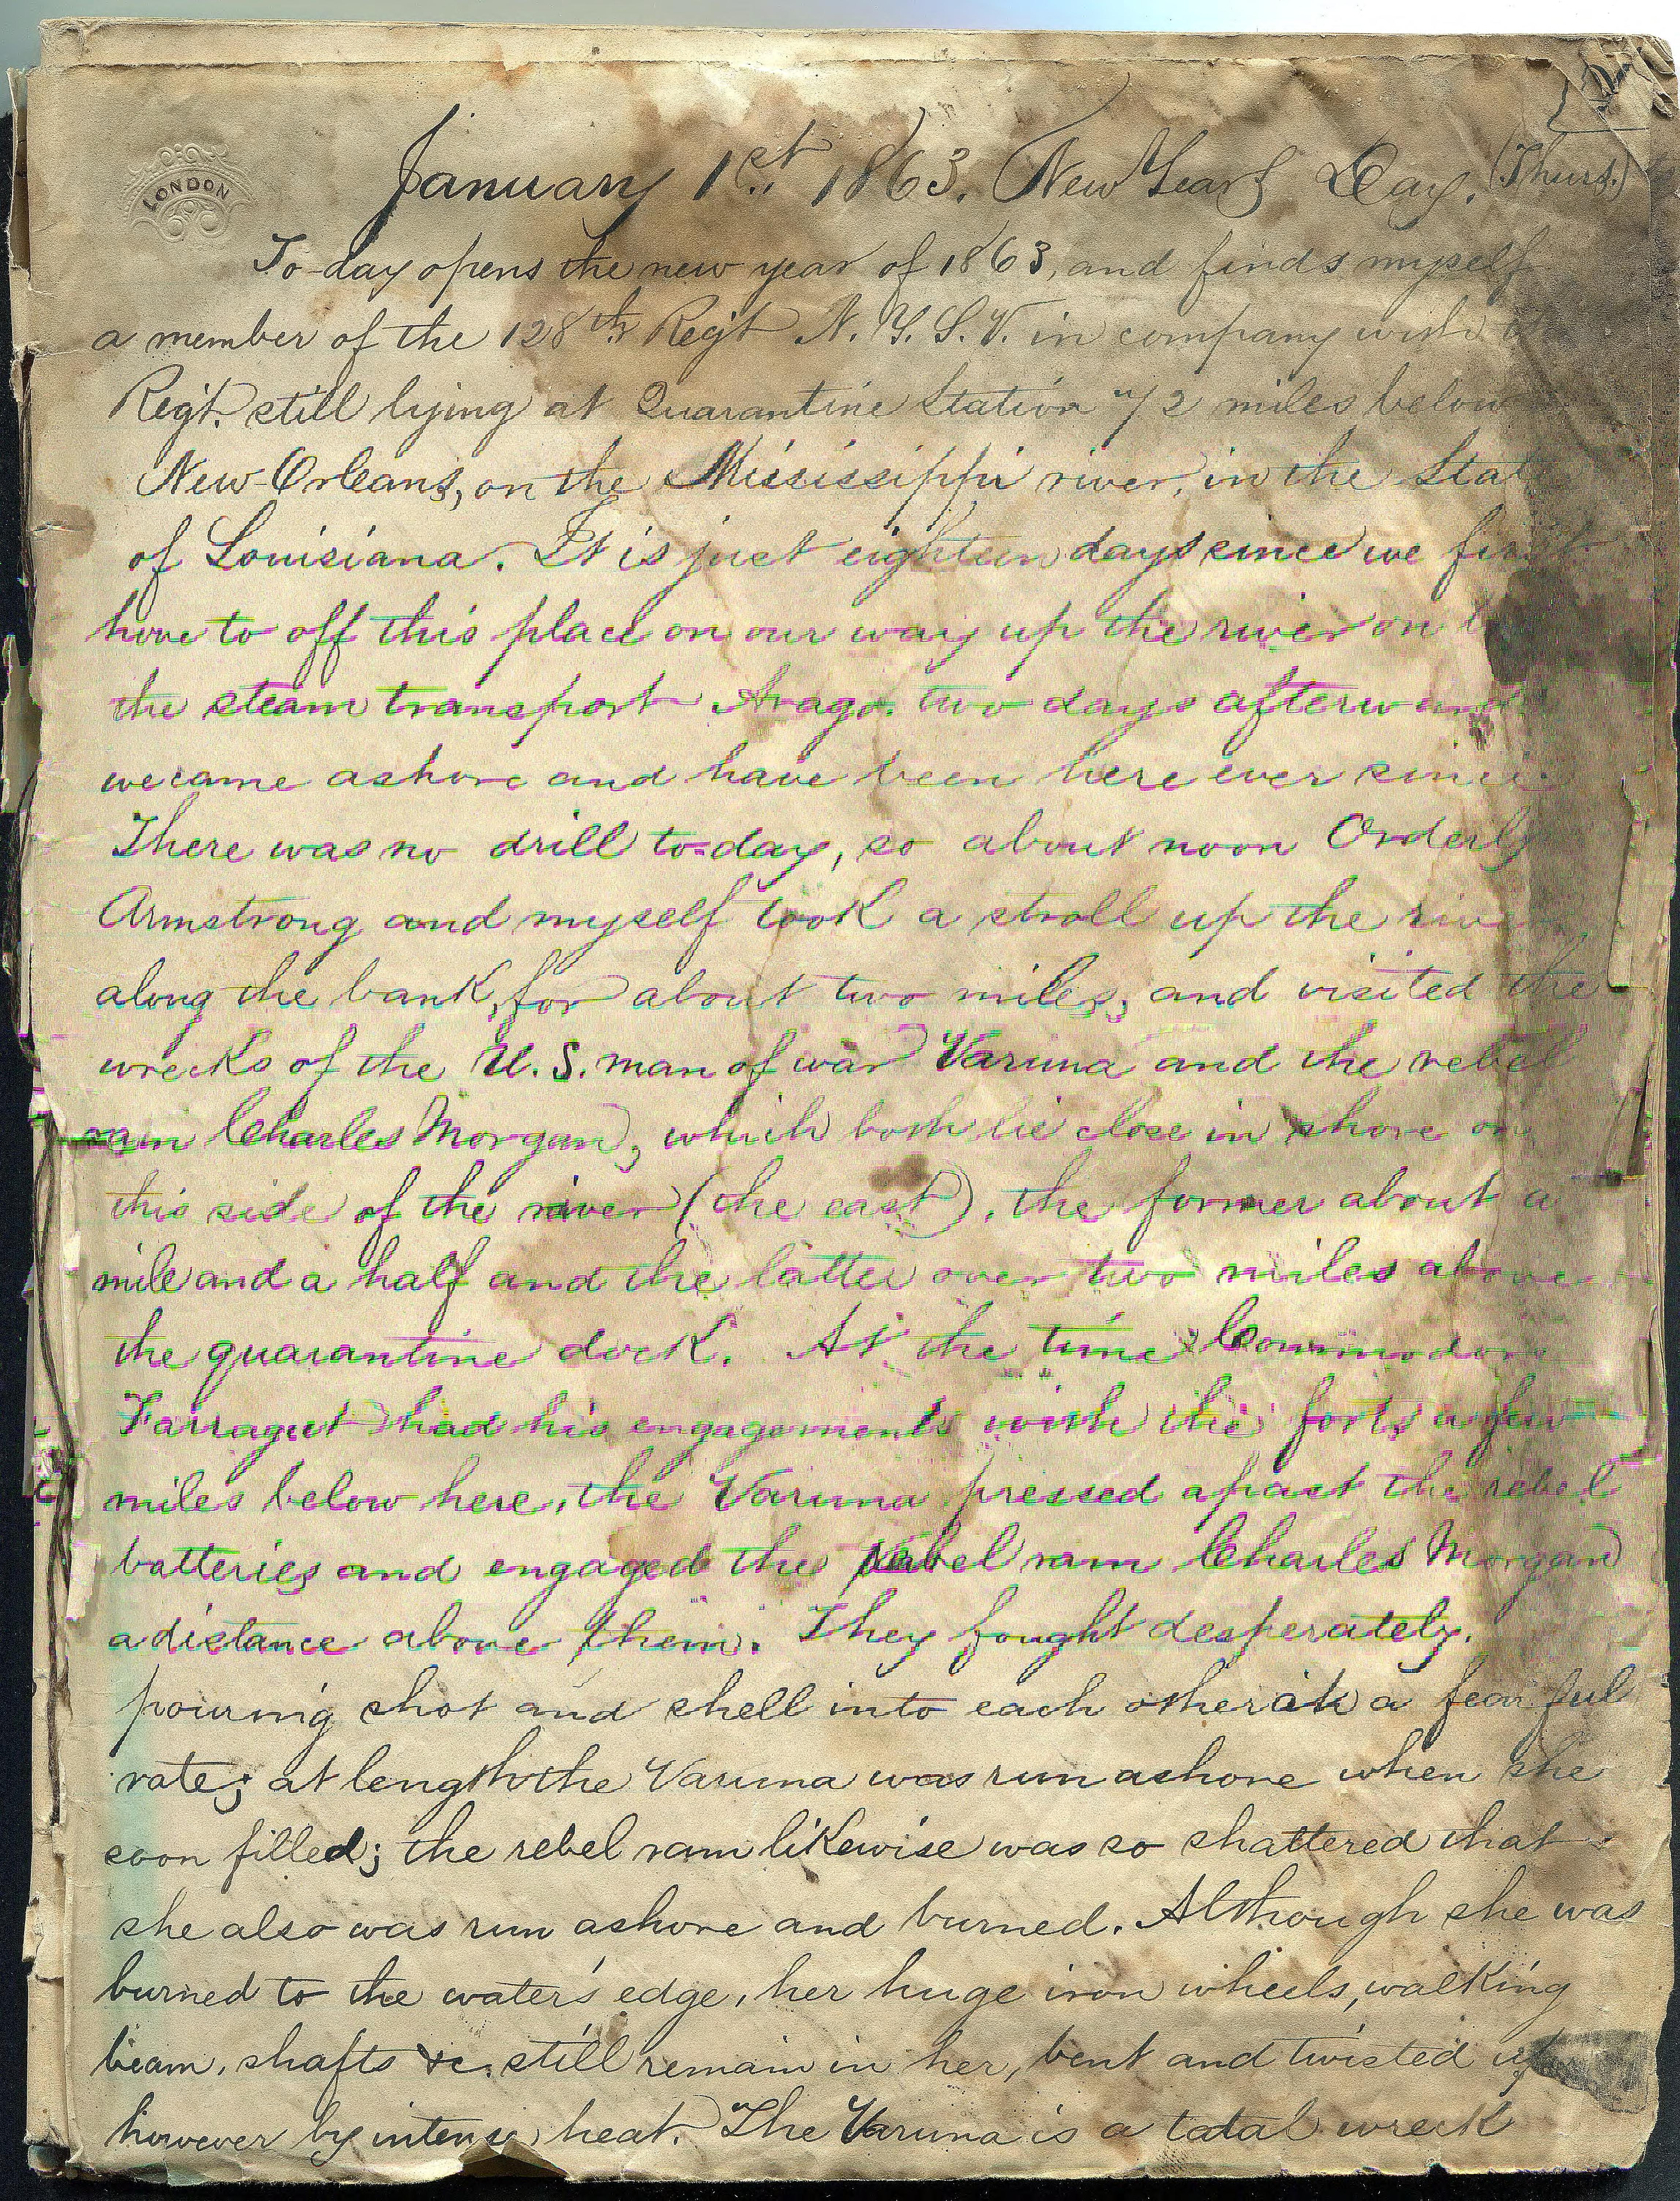 LONDON
January 1st 1863. New Years Day. (Thurs.)
To-day opens the new year of 1863, and finds myself
a member of the 128th Regt N. Y. S. V. in company with
Reg't. still lying at Quarantine Station 72 miles below
New-Orleans, on the Mississippi river, in the State
of Louisiana. It is just eighteen days since we first
hove to off this place on our way up the river on
the steam transport Arago. two days afterwards
we came ashore and have been here ever since.
There was no drill to-day, so about noon Orderly
Armstrong and myself took a stroll up the river
along the bank, for about two miles, and visited the
wrecks of the U.S. man of war Varuna and the rebel
ram Charles Morgan, which both lie close in shore on
this side of the river (the east), the former about a
mile and a half and the latter over two miles above
the quarantine dock. At the time Commodore
Farragut had his engagements with the forts a few
miles below here, the Varuna pressed apast the rebel
batteries and engaged the rebel ram Charles Morgan
a distance above them. They fought desperately,
pouring shot and shell into each other at a fearful
rate; at length the Varuna was run ashore when she
soon filled; the rebel ram likewise was so shattered that
she also was run ashore and burned. Although she was
burned to the water's edge, her huge iron wheels, walking
beam, shafts &c. still remain in her, bent and twisted up
however by intense heat. The Varuna is a total wreck